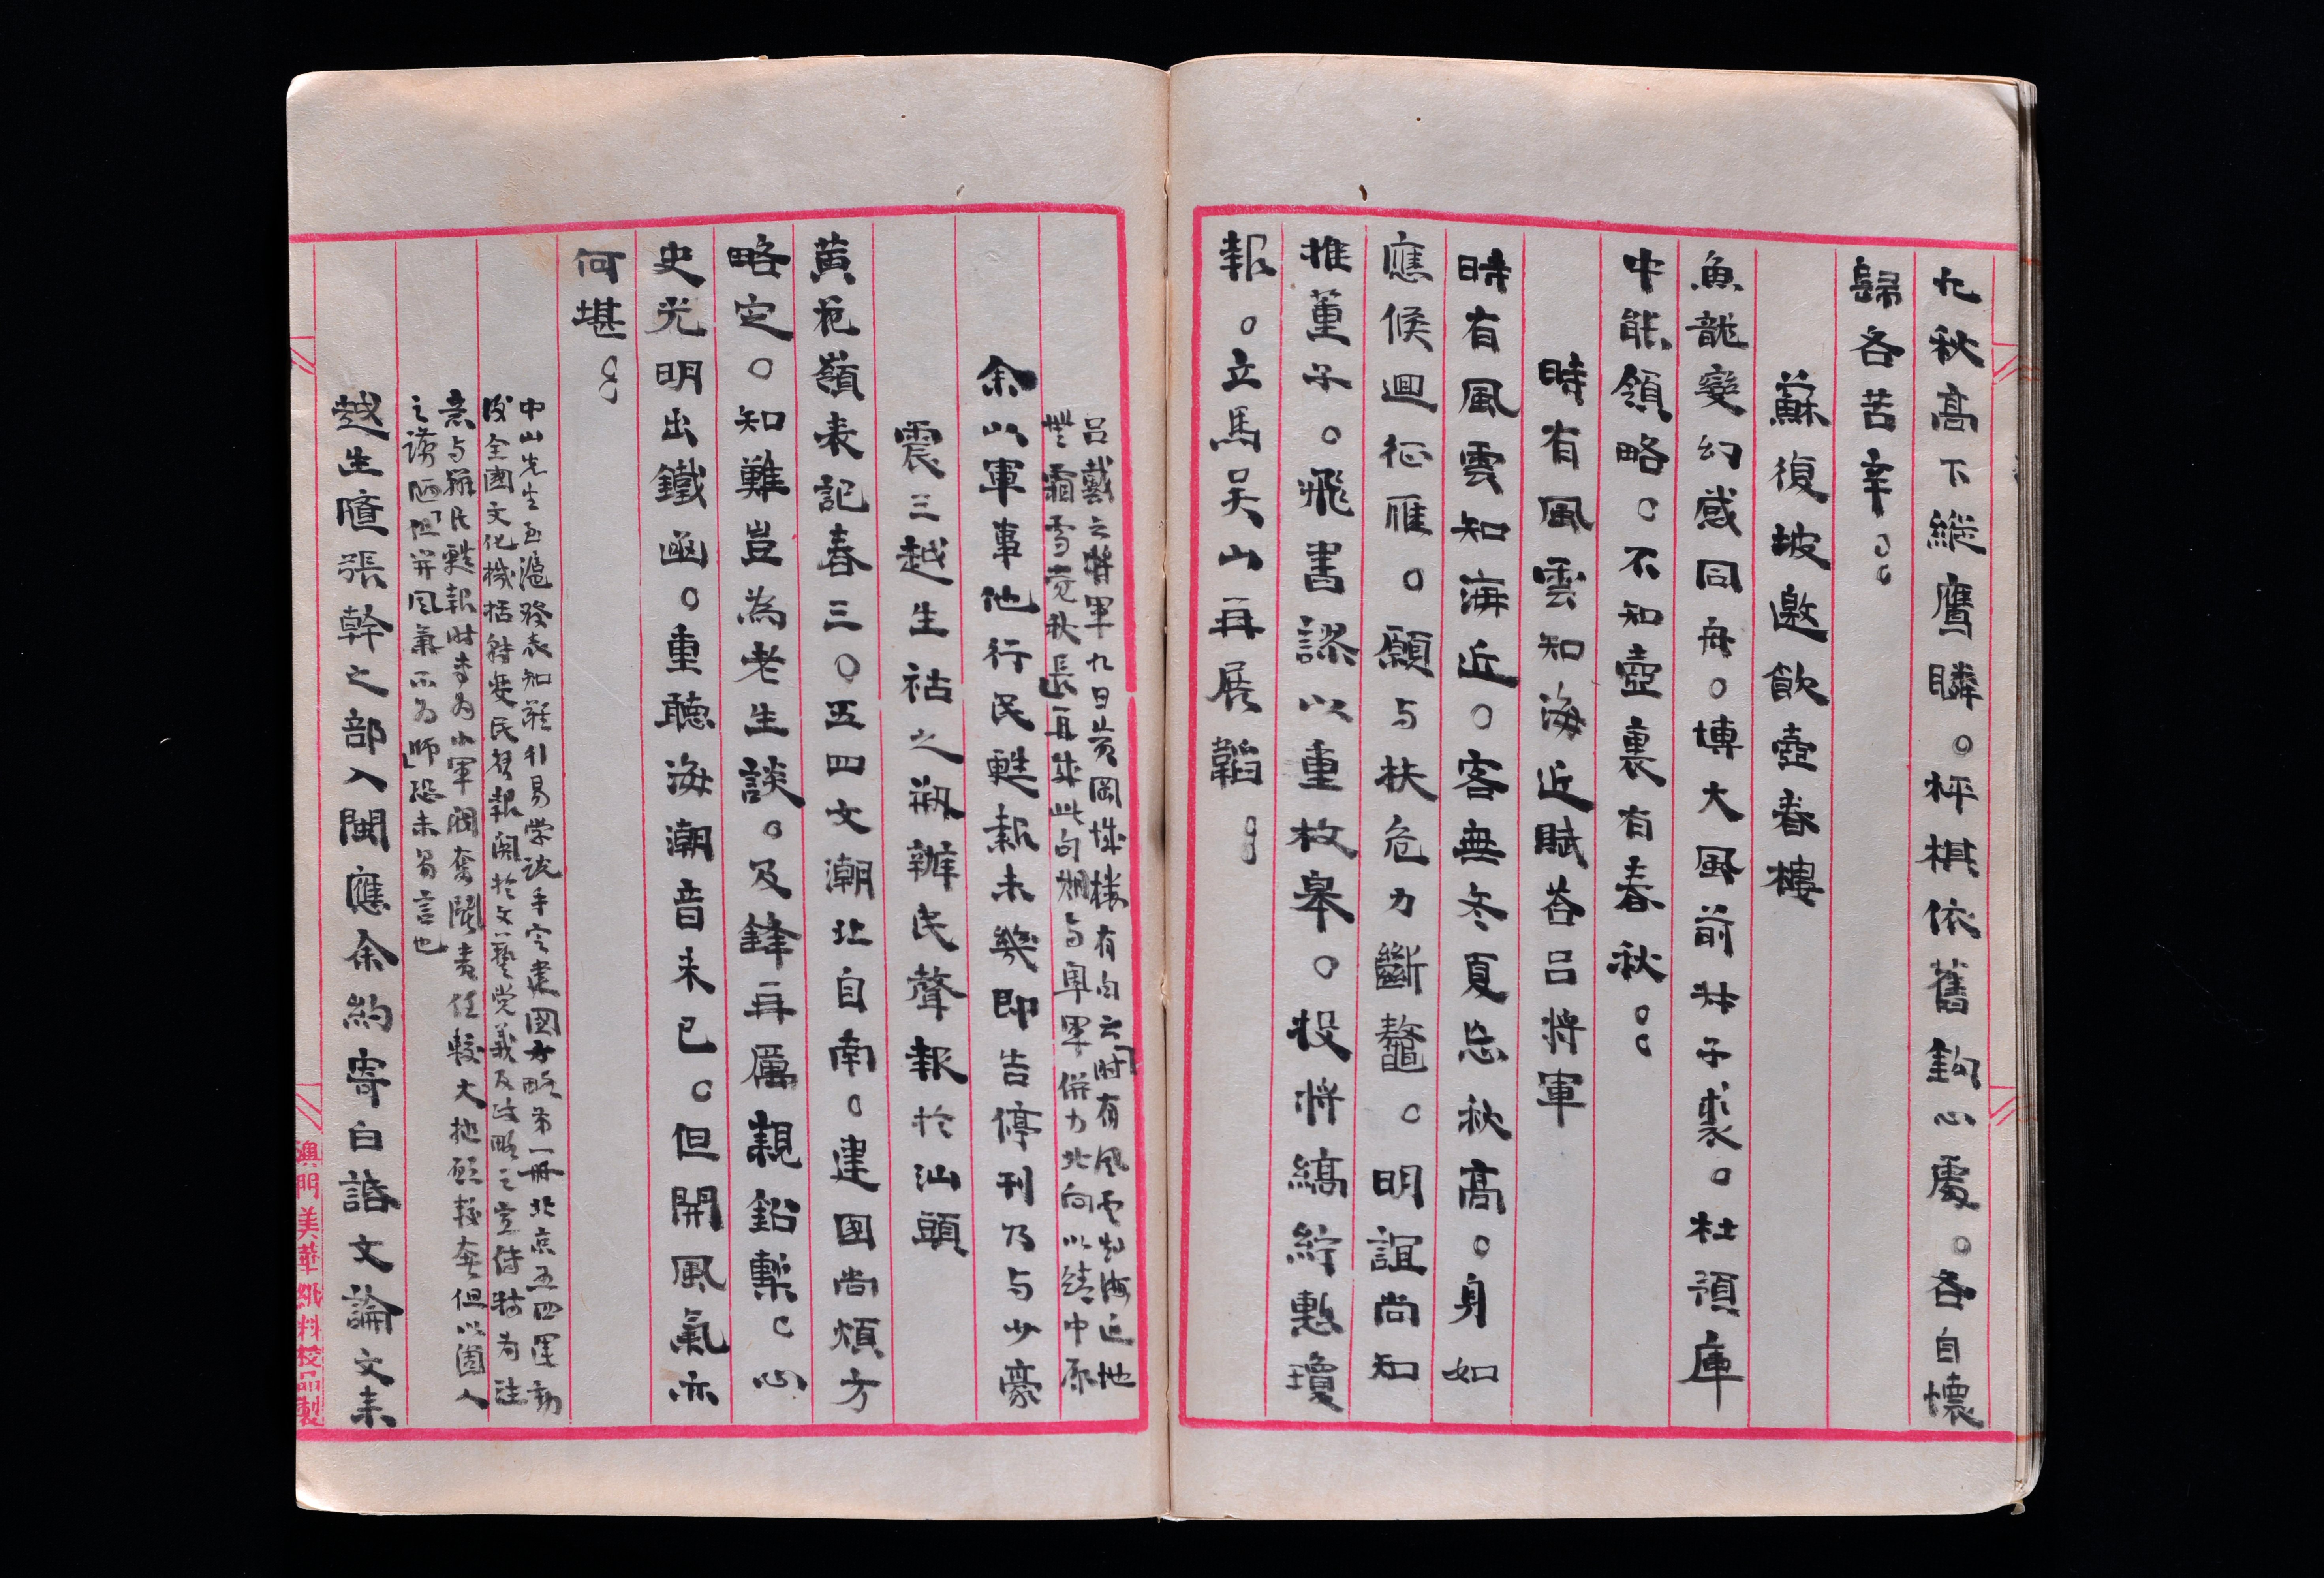 九秋高下縱鷹瞵。枰棋依舊鉤心處。各自懷
歸各苦辛。。
蘇復坡邀飲壺春樓
魚龍變幻感同舟。博大風前林子裘。杜預庫
中能領略。不知壺裏有春秋。。
時有風雲知海近賦荅呂將軍
時有風雲知海近。客無冬夏忘秋高。身如
應候迴征雁。願与扶危力斷鼇。明誼尚知
推董子。飛書謬以重枚皋。投將縞紵慙瓊
報。立馬吴山再展韜。。
呂戴之將軍九日黄岡城樓有句云「时有風雲知海近地
無霜雪覺秋長」再集此句期与軍畧併力北向以靖中原
余以軍事他行民甦報未幾即告停刊乃与少豪
震三越生祜之籾辦民聲報於汕頭
黄花嶺表記春三。五四文潮北自南。建国尚煩方
略定。知難豈為老生談。及鋒再厲親鉛槧。心
史光明出鐵函。重聽海潮音未已。但開風氣亦
何堪。。
中山先生至滬發表知難行易學説手定建國方略第一冊北京五四運動
後全國文化機括轉變民聲報関於文藝党義及政略之宣傳特為注
意与辦民甦報时專為小軍閥奮鬪責任較大抱願較奢但以個人
之谫陋「但開風氣不為師」恐未易言也
越生暄張幹之部入閩應余約寄白話文論文來
澳門美華紙料校品製